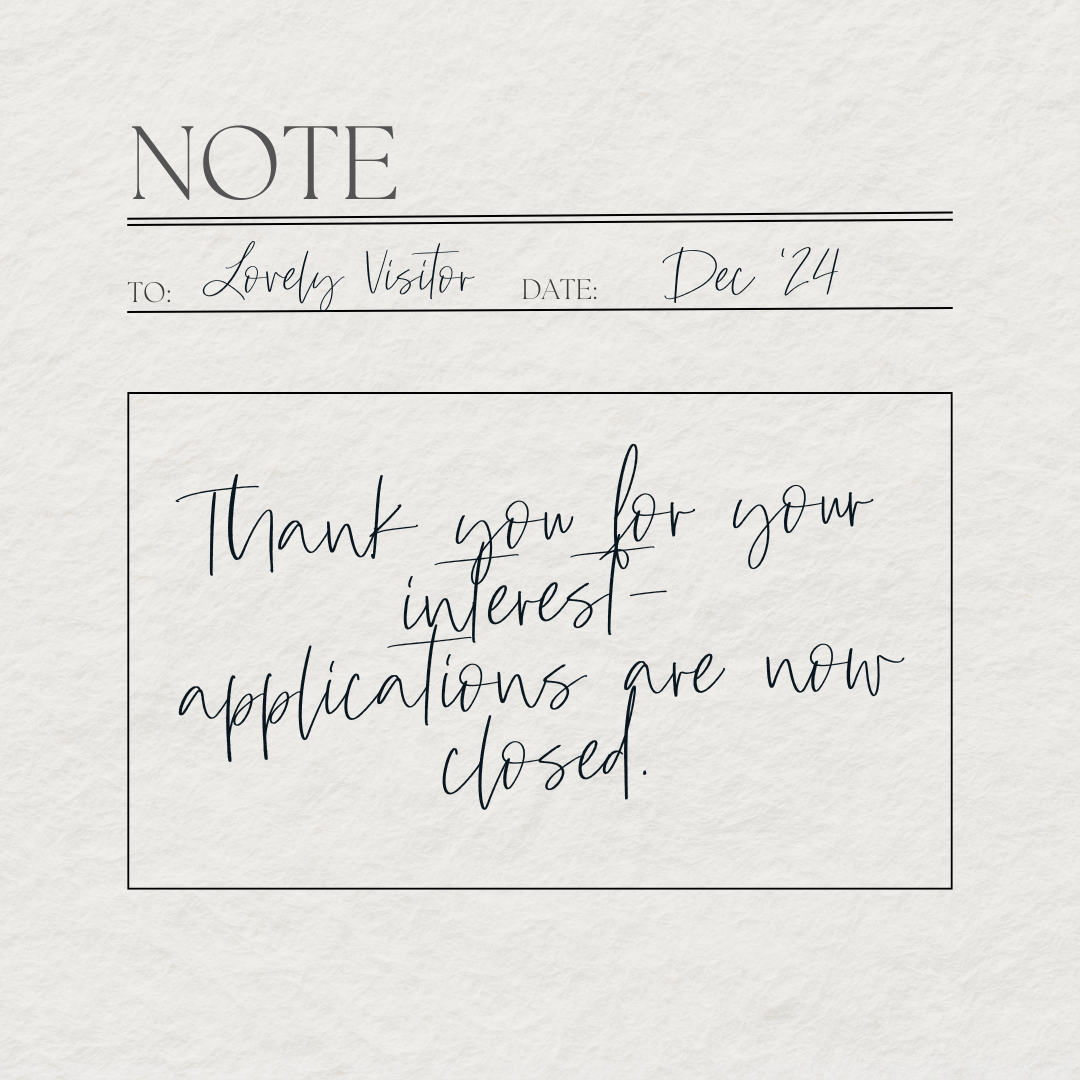 NOTE
TO: Lovely Visitor DATE: Dec '24
Thank you for your
interest-
applications are now
closed.